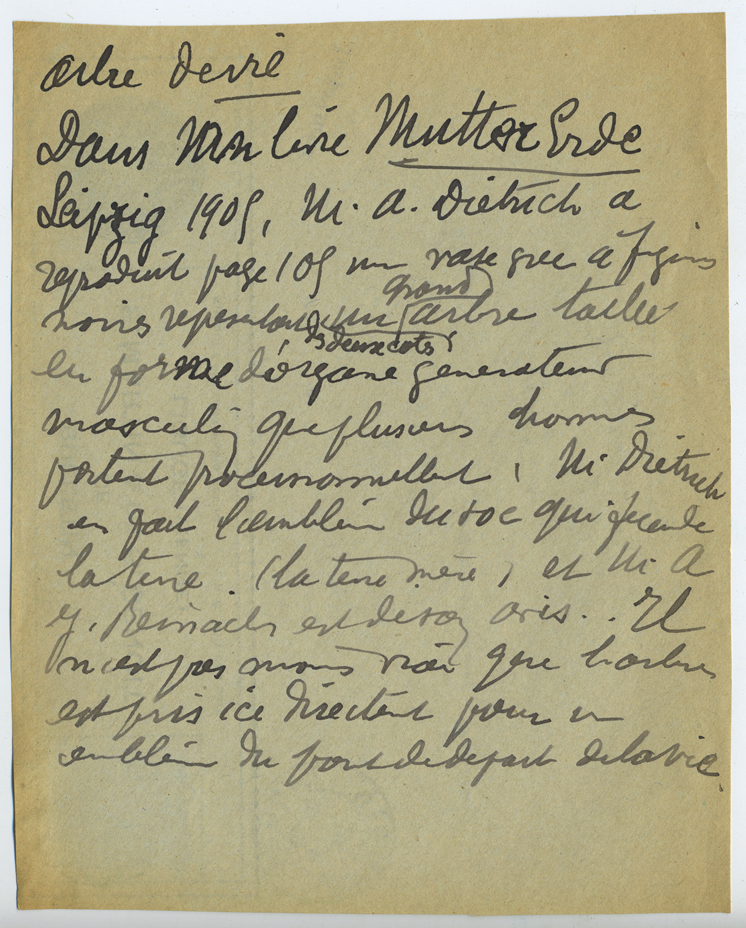 arbre de vie
Dans son livre Mutter Erde
Leipzig 1905, M. A. Dietrich a
reproduit page 105 un vase grec à figures
noires representant un grand arbre taillé
des deux cotés
en forme d'organe generateur
masculin que plusieurs hommes
portent processionnellement, M. Dietrich
en fait l'emblème du soc qui feconde
la terre. (la terre mère) et M. A
J. Reinach est de son avis.. Il
n'est pas moins vrai que l'arbre
est pris ici directement pour un
emblème du point de depart de la vie.